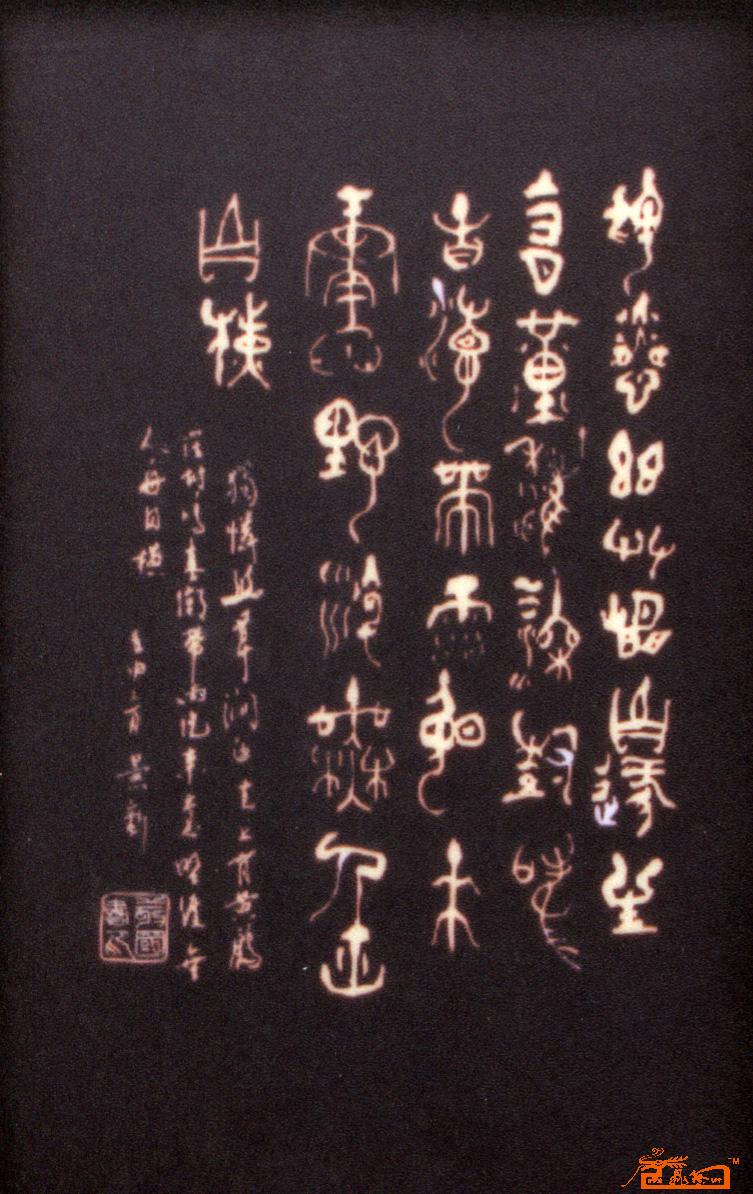 獨憐幽草澗邊生
上有黃鸝深樹鳴
春潮帶雨晚來
急野渡無人舟
自橫
獨憐幽草澗邊生上有黃鸝
深樹鳴春潮帶雨晚來急野渡無
人舟自橫